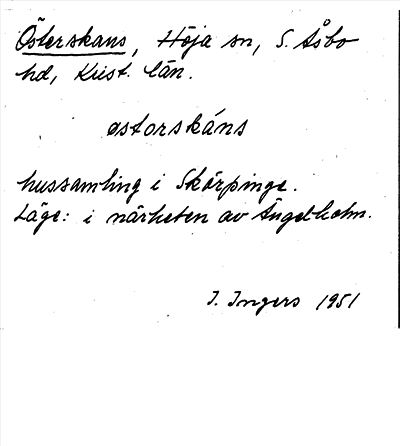 Österskans, Höja sn, S. Åsbo
hd, Krist. län.
østorskáns
hussamling i Skörpinge.
Läge: i närheten av Ängelholm.
I. Ingers 1951